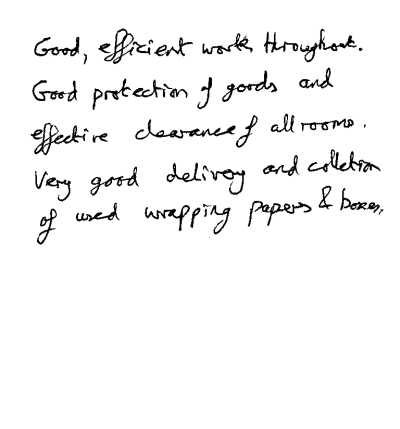 Good, efficient work throughout.
Good protection of goods and
effective clearance of all rooms.
Very good delivery and colletion
of used wrapping papers & boxes.